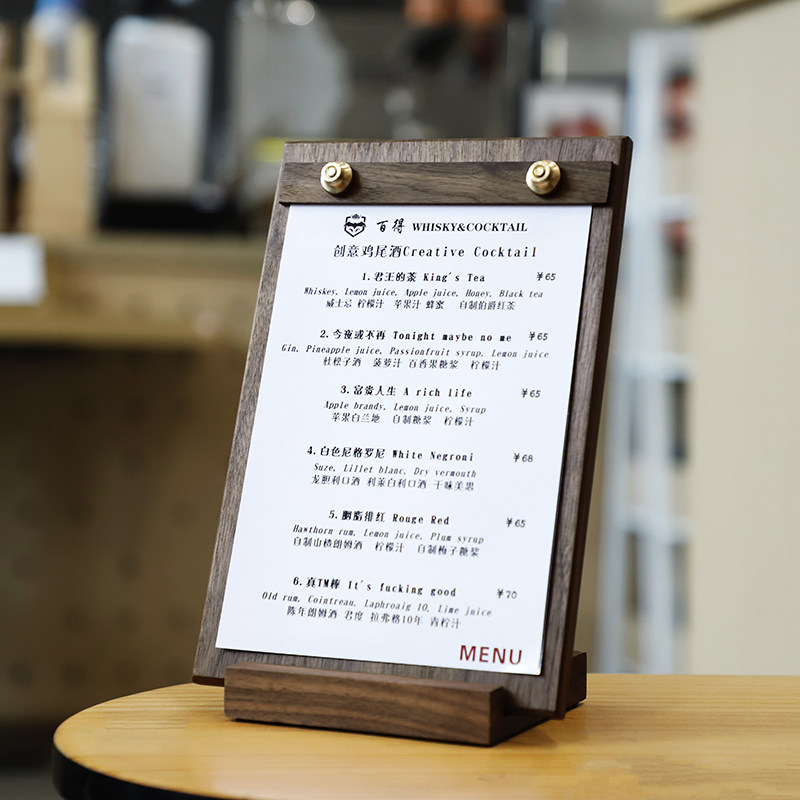 百得 WHISKY&COCKTAIL
创意鸡尾酒Creative Cocktail
1.君王的茶 King's Tea ¥65
Whiskey, Lemon juice, Apple juice, Honey, Black tea
威士忌 柠檬汁 苹果汁 蜂蜜 自制伯爵红茶
2.今夜或不再 Tonight maybe no me ¥65
Gin, Pineapple juice, Passionfruit syrup, Lemon juice
杜松子酒 菠萝汁 百香果糖浆 柠檬汁
3.富贵人生 A rich life ¥65
Apple brandy, Lemon juice, Syrup
苹果白兰地 自制糖浆 柠檬汁
4.白色尼格罗尼 White Negroni ¥68
Suze, Lillet blanc, Dry vermouth
龙胆利口酒 利莱白利口酒 干味美思
5.胭脂绯红 Rouge Red ¥65
Hawthorn rum, Lemon juice, Plum syrup
自制山楂朗姆酒 柠檬汁 自制梅子糖浆
6.真TM棒 It's fucking good ¥70
Old rum, Cointreau, Laphroaig 10, Lime juice
陈年朗姆酒 君度 拉弗格10年 青柠汁
MENU